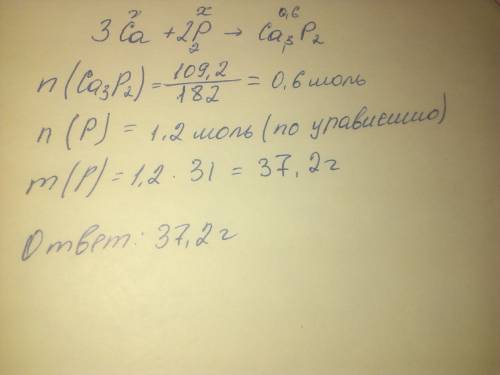 x x 0,6
3Ca + 2P → Ca₃P₂
2
n(Ca₃P₂) = 109,2/182 = 0,6 моль
n(P) = 1,2 моль (по уравнению)
m(P) = 1,2 · 31 = 37,2 г
Ответ: 37,2 г